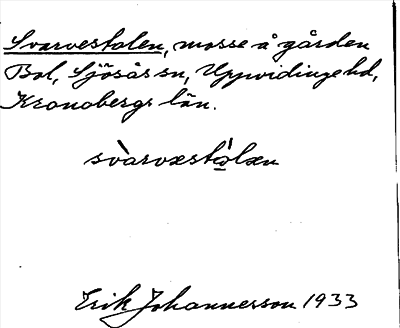 Svarvestolen, mosse å gården
Bol, Sjösås sn, Uppvidinge hd,
Kronobergs län.
svàrvestó̲læn
Erik Johannesson 1933